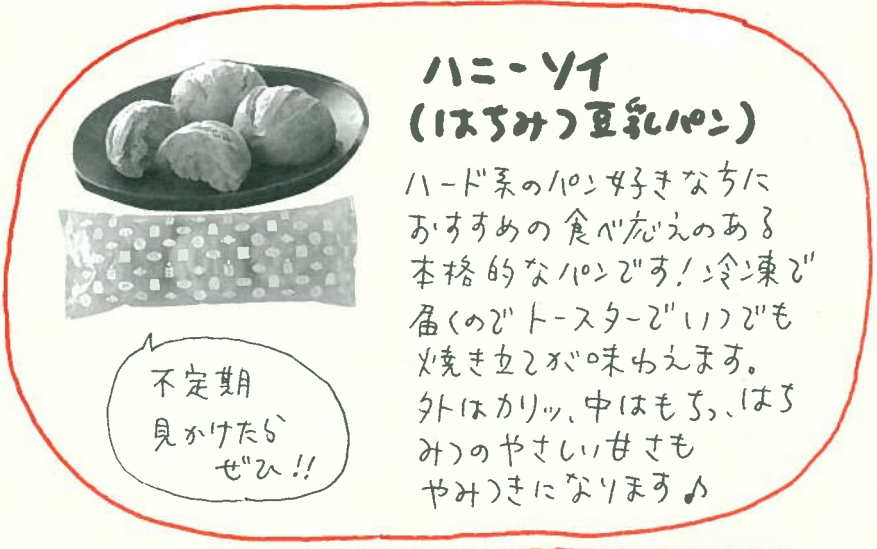 ハニーソイ
(はちみつ豆乳パン)
ハード系のパン好きなちに
おすすめの食べ応えのある
本格的なパンです!冷凍で
届くのでトースターでいつでも
焼き立てが味わえます。
外はカリッ、中はもちっ、はち
みつのやさしい甘さも
やみつきになります♪
不定期
見かけたら
ぜひ!!